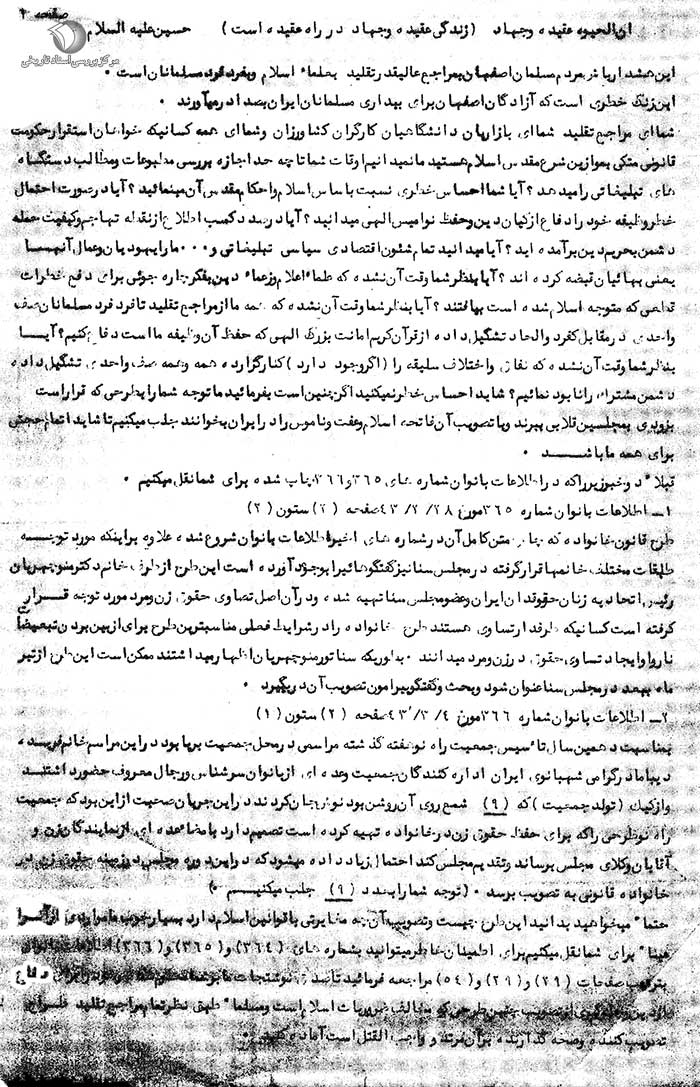 صفحه ۲
مرکز بررسی اسناد تاریخی
ان الحیوه عقیده وجهاد (زندگی عقیده وجهاد در راه عقیده است) حسین علیه السلام
این هشداریاش مردم مسلمان اصفهان بمراجع عالیقدر تقلید بعلماء اسلام وبفرد فرد مسلمانان است ۰
این زنگ خطری است که آزادگان اصفهان برای بیداری مسلمانان ایران بصدا در میآورند ۰
شما ای مراجع تقلید شما ای بازاریان دانشگاهیان کارگران کشاورزان وشما ای همه کسانیکه خواهان استقرار حکومت
قانونی متکی بموازین شرع مقدس اسلام هستید ما نمیدانیم اوقات شما تا چه حد اجازه بررسی مطبوعات ومطالب دستگاه
های تبلیغاتی را میدهد ؟ آیا شما احساس خطری نسبت باساس اسلام واحکام مقدس آن مینمائید ؟ آیا در صورت احتمال
خطر وظیفه خود را دفاع از کیان دین وحفظ نوامیس الهی میدانید ؟ آیا در صدد کسب اطلاع از نقطه تهاجم وکیفیت حمله
دشمن بحریم دین برآمده اید ؟ آیا میدانید تمام شئون اقتصادی سیاسی تبلیغاتی و۰۰۰ ما را یهودیان وعمال آنهـا
یعنی بهائیان قبضه کرده اند ؟ آیا بنظر شما وقت آن نشده که علماء اعلام وزعماء دین بفکر چاره جوئی برای دفع خطرات
قطعی که متوجه اسلام شده است بیافتند ؟ آیا بنظر شما وقت آن نشده که همه ما از مراجع تقلید تا فرد فرد مسلمانان صف
واحدی در مقابل کفر والحاد تشگیل داده از قرآن کریم امانت بزرگ الهی که حفظ آن وظیفه ما است دفاع کنیم؟ آیـا
بنظر شما وقت آن نشده که نفاق واختلاف سلیقه را (اگر وجود دارد) کنار گزارده همه وهمه صف واحدی تشگیل داده
دشمن مشترک را نابود نمائیم ؟ شاید احساس خطر نمیکنید اگر چنین است بفرمائید ما توجه شما را بطرحی که قرار است
بزودی بمجلسین قلابی ببرند وبا تصویب آن فاتحه اسلام وعفت وناموس را در ایران بخوانند جلب میکنیم تا شاید اتمام حجتی
برای همه ما باشـــد ۰
قبلا دو خبر زیر را که در اطلاعات بانوان شماره های ۳۶۵ و۳۶۶ چاپ شده برای شما نقل میکنیم ۰
۱ــ اطلاعات بانوان شماره ۳۶۵ مورخ ۲۸/ ۲/ ۴۳ صفحه (۲) ستون (۲)
طرح قانون خانواده که چاپ متن کامل آن در شماره های اخیر اطلاعات بانوان شروع شده علاوه براینکه مورد توجــه
طبقات مختلف خانمها قرار گرفته در مجلس سنا نیز گفتگوهائی را بوجود آورده است این طرح از طرف خانم دکتر منوچهریان
رئیس اتحادیه زنان حقوقدان ایران وعضو مجلس سنا تهیه شده ودر آن اصل تساوی حقوق زن ومرد مورد توجه قـرار
گرفته است کسانیکه طرفدار تساوی هستند طرح خانواده را در شرایط فعلی مناسبترین طرح برای از بین بردن تبعیضات
ناروا وایجاد تساوی حقوق در زن ومرد میدانند ۰ بطوریکه سناتور منوچهریان اظهار میداشتند ممکن است این طرح از تیر
ماه ببعد در مجلس سنا عنوان شود وبحث وگفتگو پیرامون تصویب آن در بگیرد ۰
۲ــ اطلاعات بانوان شماره ۳۶۶ مورخ ۴/ ۳/ ۴۳ صفحه (۲) ستون (۱)
بمناسبت دهمین سال تأسیس جمعیت راه نو هفته گذشته مراسمی در محل جمعیت برپا بود در این مراسم خانم فریده
دیبا مادر گرامی شهبانوی ایران اداره کنندگان جمعیت وعده ای از بانوان سرشناس ورجال معروف حضور داشتند
واز کیک (تولد جمعیت) که (۹) شمع روی آن روشن بود نوش جان کردند در این جریان صحبت از این بود که جمعیت
راه نو طرحی را که برای حفظ حقوق زن در خانواده تهیه کرده است تصمیم دارد با مضاء عده ای از نمایندگان زن و
آقایان وکلای مجلس برساند وتقدیم مجلس کند احتمال زیاد داده میشود که در این دوره مجلس در زمینه حقوق زن در
خانواده قانونی به تصویب برسد ۰ (توجه شما را ببند (۹) جلب میکنیــم ۰)
حتما میخواهید بدانید این طرح چیست وتصویب آن چه مغایرتی با قوانین اسلام دارد بسیار خوب ما مواردی از آنرا
عینا برای شما نقل میکنیم برای اطمینان خاطر میتوانید بشماره های (۳۶۴) و(۳۶۵) و(۳۶۶) اطلاعات بانوان
بترتیب صفحات (۲۹) و(۲۹) و(۵۴) مراجعه فرمائید تا صدق نوشتجات ما بر شما
از تصویب چنین طرحی که مخالف ضروریات اسلام است ومسلما طبق نظر تمام مراجع تقلید
تصویب کننده وصحه گذارنده بر آن مرتد و واجب القتل است آماده کنید ۰